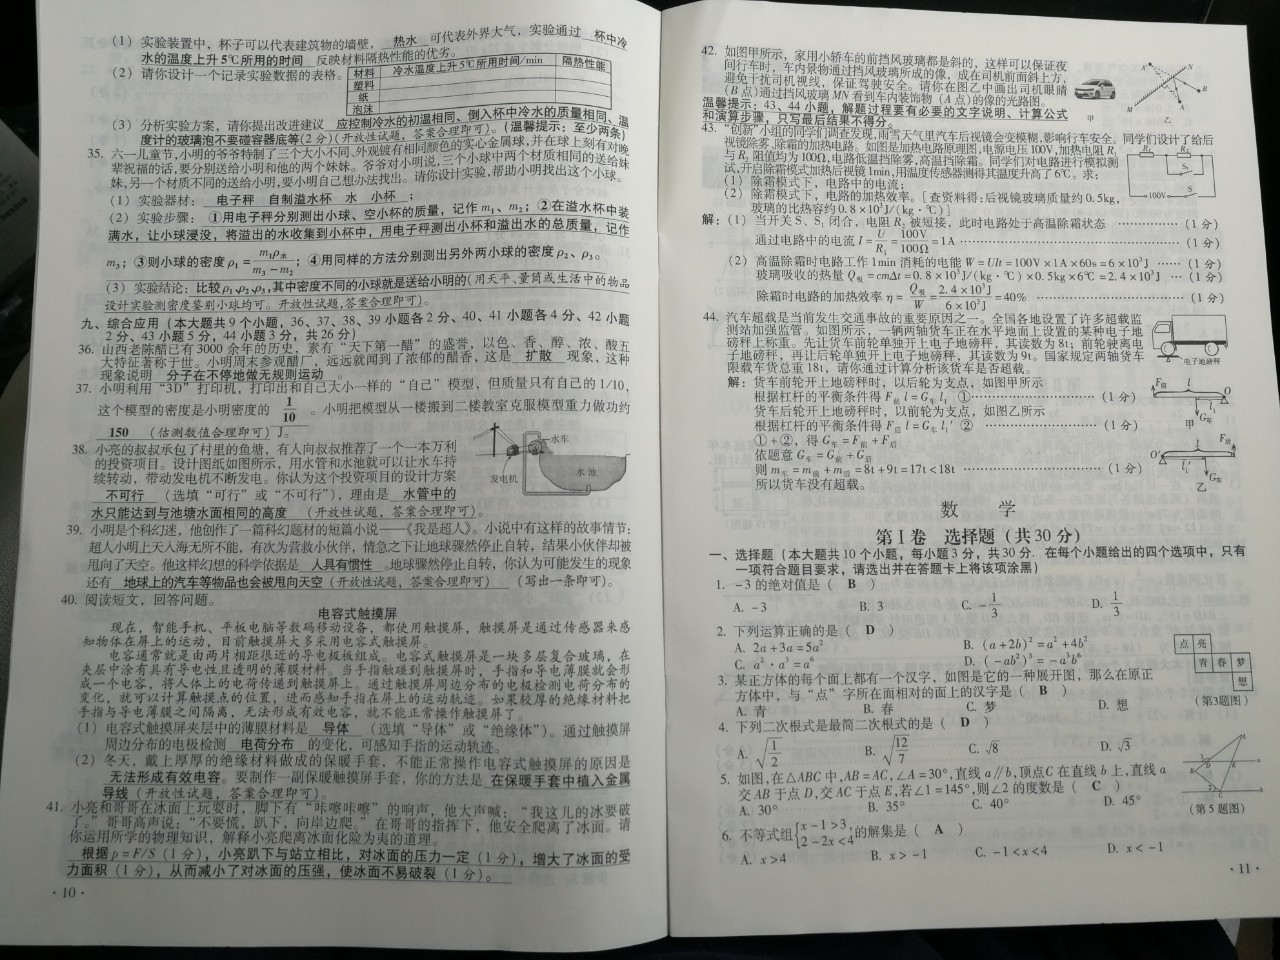 (1) 实验装置中，杯子可以代表建筑物的墙壁，热水 可代表外界大气，实验通过 杯中冷
水的温度上升5℃所用的时间 反映材料隔热性能的优劣。
(2) 请你设计一个记录实验数据的表格。
材料 冷水温度上升5℃所用时间/min 隔热性能
塑料
纸
泡沫
(3) 分析实验方案，请你提出改进建议 应控制冷水的初温相同、倒入杯中冷水的质量相同、温
度计的玻璃泡不要碰容器底等(2分)(开放性试题，答案合理即可)。(温馨提示：至少两条)
35. 六一儿童节,小明的爷爷特制了三个大小不同、外观镀有相同颜色的实心金属球,并在球上刻有对晚
辈祝福的话,要分别送给小明和他的两个妹妹。爷爷对小明说,三个小球中两个材质相同的送给妹
妹,另一个材质不同的送给小明,要小明自己想办法找出。请你设计实验,帮助小明找出这个小球。
(1) 实验器材： 电子秤 自制溢水杯 水 小杯 ；
(2) 实验步骤： ①用电子秤分别测出小球、空小杯的质量，记作 m₁、m₂；②在溢水杯中装
满水，让小球浸没，将溢出的水收集到小杯中，用电子秤测出小杯和溢出水的总质量，记作
m₃；③则小球的密度 ρ₁ = m₁ρ水/(m₃−m₂)；④用同样的方法分别测出另外两小球的密度 ρ₂、ρ₃。
(3) 实验结论：比较ρ₁、ρ₂、ρ₃,其中密度不同的小球就是送给小明的(用天平、量筒或生活中的物品
设计实验测密度鉴别小球均可。开放性试题,答案合理即可)。
九、综合应用（本大题共9个小题，36、37、38、39小题各2分、40、41小题各4分、42小题
2分、43小题5分，44小题3分，共26分）
36. 山西老陈醋已有3000余年的历史，素有“天下第一醋”的盛誉，以色、香、醇、浓、酸五
大特征著称于世。小明周末参观醋厂，远远就闻到了浓郁的醋香，这是 扩散 现象，这种
现象说明 分子在不停地做无规则运动 。
37. 小明利用“3D”打印机，打印出和自己大小一样的“自己”模型，但质量只有自己的1/10，
这个模型的密度是小明密度的 1/10 。小明把模型从一楼搬到二楼教室克服模型重力做功约
150 (估测数值合理即可) J。
38. 小亮的叔叔承包了村里的鱼塘，有人向叔叔推荐了一个一本万利
的投资项目。设计图纸如图所示，用水管和水池就可以让水车持
续转动，带动发电机不断发电。你认为这个投资项目的设计方案
不可行 （选填“可行”或“不可行”），理由是 水管中的
水只能达到与池塘水面相同的高度 (开放性试题，答案合理即可)。
水车
水 池
发电机
39. 小明是个科幻迷，他创作了一篇科幻题材的短篇小说——《我是超人》。小说中有这样的故事情节：
超人小明上天入海无所不能，有次为营救小伙伴，情急之下让地球骤然停止自转，结果小伙伴却被
甩向了天空。他这样幻想的科学依据是 人具有惯性 。地球骤然停止自转，你认为可能发生的现象
还有 地球上的汽车等物品也会被甩向天空 (开放性试题，答案合理即可) （写出一条即可）。
40. 阅读短文，回答问题。
电容式触摸屏
现在，智能手机、平板电脑等数码移动设备，都使用触摸屏，触摸屏是通过传感器来感
知物体在屏上的运动，目前触摸屏大多采用电容式触摸屏。
电容通常就是由两片相距很近的导电极板组成。电容式触摸屏是一块多层复合玻璃，在
夹层中涂有具有导电性且透明的薄膜材料。当手指触碰到触摸屏时，手指和导电薄膜就会形
成一个电容，将人体上的电荷传递到触摸屏上。通过触摸屏周边分布的电极检测电荷分布的
变化，就可以计算触摸点的位置，进而感知手指在屏上的运动轨迹。如果较厚的绝缘材料把
手指与导电薄膜之间隔离，无法形成有效电容，就不能正常操作触摸屏了。
(1) 电容式触摸屏夹层中的薄膜材料是 导体 （选填“导体”或“绝缘体”）。通过触摸屏
周边分布的电极检测 电荷分布 的变化，可感知手指的运动轨迹。
(2) 冬天，戴上厚厚的绝缘材料做成的保暖手套，不能正常操作电容式触摸屏的原因是
无法形成有效电容。要制作一副保暖触摸屏手套，你的方法是 在保暖手套中植入金属
导线 (开放性试题，答案合理即可)。
41. 小亮和哥哥在冰面上玩耍时，脚下有“咔嚓咔嚓”的响声，他大声喊：“我这儿的冰要破
了。”哥哥高声说：“不要慌，趴下，向岸边爬。”在哥哥的指挥下，他安全爬离了冰面。请
你运用所学的物理知识，解释小亮爬离冰面化险为夷的道理。
根据 p = F/S（1分），小亮趴下与站立相比，对冰面的压力一定（1分），增大了冰面的受
力面积（1分），从而减小了对冰面的压强，使冰面不易破裂（1分）。
· 10 ·
42. 如图甲所示，家用小轿车的前挡风玻璃都是斜的，这样可以保证夜
间行车时，车内景物通过挡风玻璃所成的像，成在司机前面斜上方，
避免干扰司机视线，保证驾驶安全。请你在图乙中画出司机眼睛
(B点)通过挡风玻璃MN看到车内装饰物（A点)的像的光路图。
A′
N
B
M
甲 乙
温馨提示：43、44小题，解题过程要有必要的文字说明、计算公式
和演算步骤，只写最后结果不得分。
43. “创新”小组的同学们调查发现,雨雪天气里汽车后视镜会变模糊,影响行车安全。同学们设计了给后
视镜除雾、除霜的加热电路。如图是加热电路原理图,电源电压100V,加热电阻R₁
与R₂阻值均为100Ω,电路低温挡除雾,高温挡除霜。同学们对电路进行模拟测
试,开启除霜模式加热后视镜1min,用温度传感器测得其温度升高了6℃。求：
(1) 除霜模式下，电路中的电流；
(2) 除霜模式下，电路的加热效率。[查资料得：后视镜玻璃质量约0.5kg，
玻璃的比热容约0.8×10³J/(kg·℃)]
R₁ R₂
S₁
100V
S
解：(1) 当开关S、S₁闭合，电阻R₂被短接，此时电路处于高温除霜状态 ………… (1分)
通过电路中的电流 I = U/R₁ = 100V/100Ω = 1A ………… (1分)
(2) 高温除霜时电路工作1min消耗的电能 W=UIt=100V×1A×60s=6×10³J …… (1分)
玻璃吸收的热量 Q吸=cmΔt=0.8×10³J/(kg·℃)×0.5kg×6℃=2.4×10³J … (1分)
除霜时电路的加热效率 η = Q吸/W = 2.4×10³J/6×10³J = 40% ………… (1分)
44. 汽车超载是当前发生交通事故的重要原因之一。全国各地设置了许多超载监
测站加强监管。如图所示，一辆两轴货车正在水平地面上设置的某种电子地
磅秤上称重。先让货车前轮单独开上电子地磅秤，其读数为8t；前轮驶离电
子地磅秤，再让后轮单独开上电子地磅秤，其读数为9t。国家规定两轴货车
限载车货总重18t，请你通过计算分析该货车是否超载。
电子地磅秤
解：货车前轮开上地磅秤时，以后轮为支点，如图甲所示
根据杠杆的平衡条件得 F前 l=G车 l₁ ①………… (1分)
货车后轮开上地磅秤时，以前轮为支点，如图乙所示
根据杠杆的平衡条件得 F后 l=G车 l₁′ ② ………… (1分)
①+②，得 G车=F前+F后
依题意 G车=G前+G后
则 m车=m前+m后=8t+9t=17t<18t ………… (1分)
所以货车没有超载。
F前 l O
l₁
G车
甲
F后
O′ l
l₁′
G车
乙
数 学
第Ⅰ卷 选择题（共30分）
一、选择题（本大题共10个小题，每小题3分，共30分．在每个小题给出的四个选项中，只有
一项符合题目要求，请选出并在答题卡上将该项涂黑）
1. −3的绝对值是（ B ）
A. −3 B. 3 C. −1/3 D. 1/3
2. 下列运算正确的是（ D ）
A. 2a+3a=5a² B. (a+2b)²=a²+4b²
C. a²·a³=a⁶ D. (−ab²)³=−a³b⁶
3. 某正方体的每个面上都有一个汉字，如图是它的一种展开图，那么在原正
方体中，与“点”字所在面相对的面上的汉字是（ B ）
A. 青 B. 春 C. 梦 D. 想
点 亮
青 春 梦
想
(第3题图)
4. 下列二次根式是最简二次根式的是（ D ）
A. √(1/2) B. √(12/7) C. √8 D. √3
5. 如图,在△ABC中,AB=AC,∠A=30°,直线a∥b,顶点C在直线b上,直线a
交AB于点D,交AC于点E,若∠1=145°,则∠2的度数是（ C ）
A. 30° B. 35° C. 40° D. 45°
(第5题图)
6. 不等式组{x−1>3, 2−2x<4 的解集是（ A ）
A. x>4 B. x>−1 C. −1<x<4 D. x<−1
· 11 ·